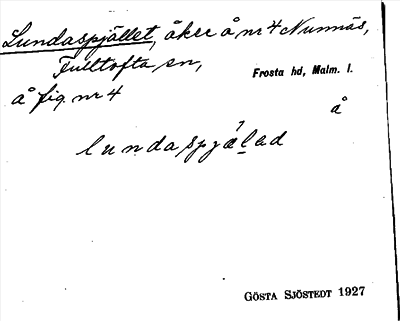 Lundaspjället, åker å nr 4 Nunnäs,
Fulltofta sn,
Frosta hd, Malm. l.
å fig. nr 4
å
lundaspjälad
GÖSTA SJÖSTEDT 1927